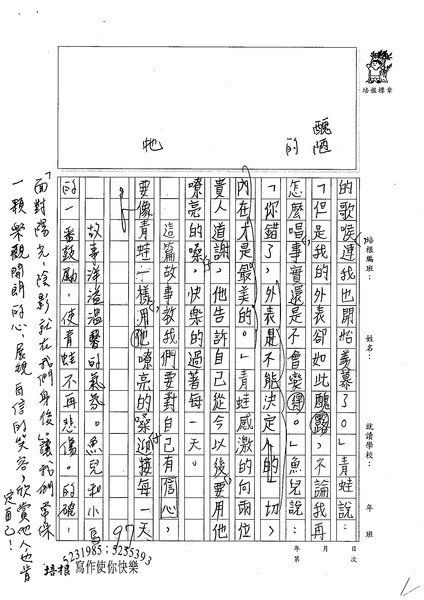 培根標章
醜陋
的
牠
培根編班：
姓名：
就讀學校：
年 班
年 月 日
第 次
的歌喉連我也開始羨慕了。」青蛙說：
「但是我的外表卻如此醜露，不論我再
怎麼唱，事實還是不會變得。」魚兒說：
「你錯了，外表是不能決定人的一切，
內在才是最美的。」青蛙感激的向兩位
貴人道謝，他告訴自己從今以後要用他
嘹亮的嗓，快樂的過著每一天。
這篇故事教我們要對自己有信心，
要像青蛙一樣，用他嘹亮的嗓迎接每一天
。
故事洋溢溫馨的氣氛。魚兒和小鳥
的一番鼓勵，使青蛙不再悲傷。的確，
「面對陽光，陰影就在我們身後」讓我們常保
一顆樂觀開朗的心，展現自信的笑容，欣賞他人也肯
定自己！
97
5231985；5255393
培根 寫作使你快樂